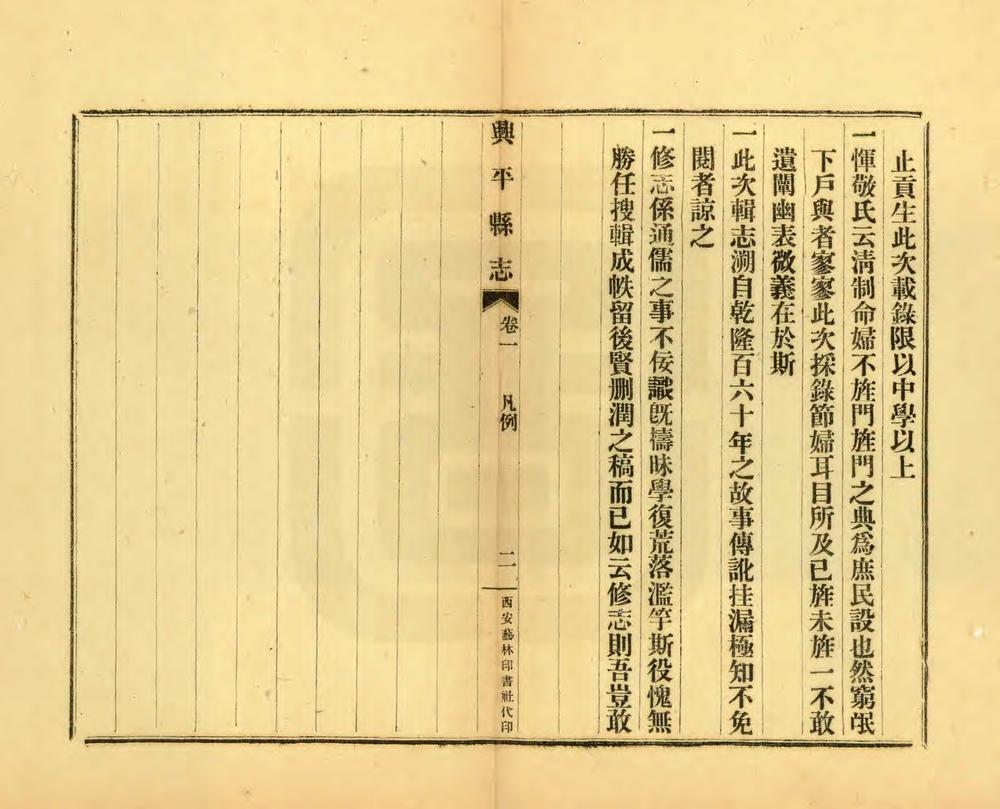 止貢生此次載錄限以中學以上
一惲敬氏云淸制命婦不旌門旌門之典爲庶民設也然窮氓
下戶與者寥寥此次採錄節婦耳目所及已旌未旌一不敢
遺闡幽表微義在於斯
一此次輯志溯自乾隆百六十年之故事傳訛挂漏極知不免
閱者諒之
一修志係通儒之事不佞識旣檮昧學復荒落濫竽斯役愧無
勝任搜輯成帙留後賢删潤之稿而已如云修志則吾豈敢
興平縣志 卷一 凡例 二 西安藝林印書社代印